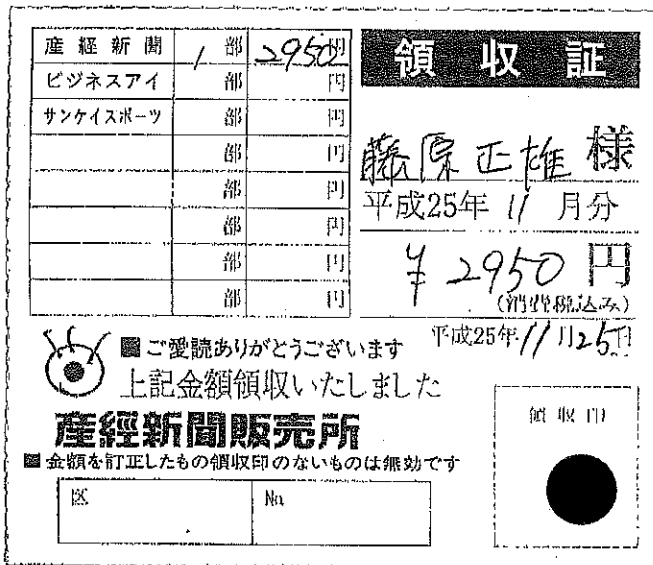 産経新聞 1部 2950円
ビジネスアイ 部 円
サンケイスポーツ 部 円
部 円
部 円
部 円
部 円
部 円
領収証
藤原正雄様
平成25年 11 月分
¥ 2950 円
(消費税込み)
平成25年 11月25日
■ご愛読ありがとうございます
上記金額領収いたしました
産經新聞販売所
■金額を訂正したもの領収印のないものは無効です
領収印
区 No.